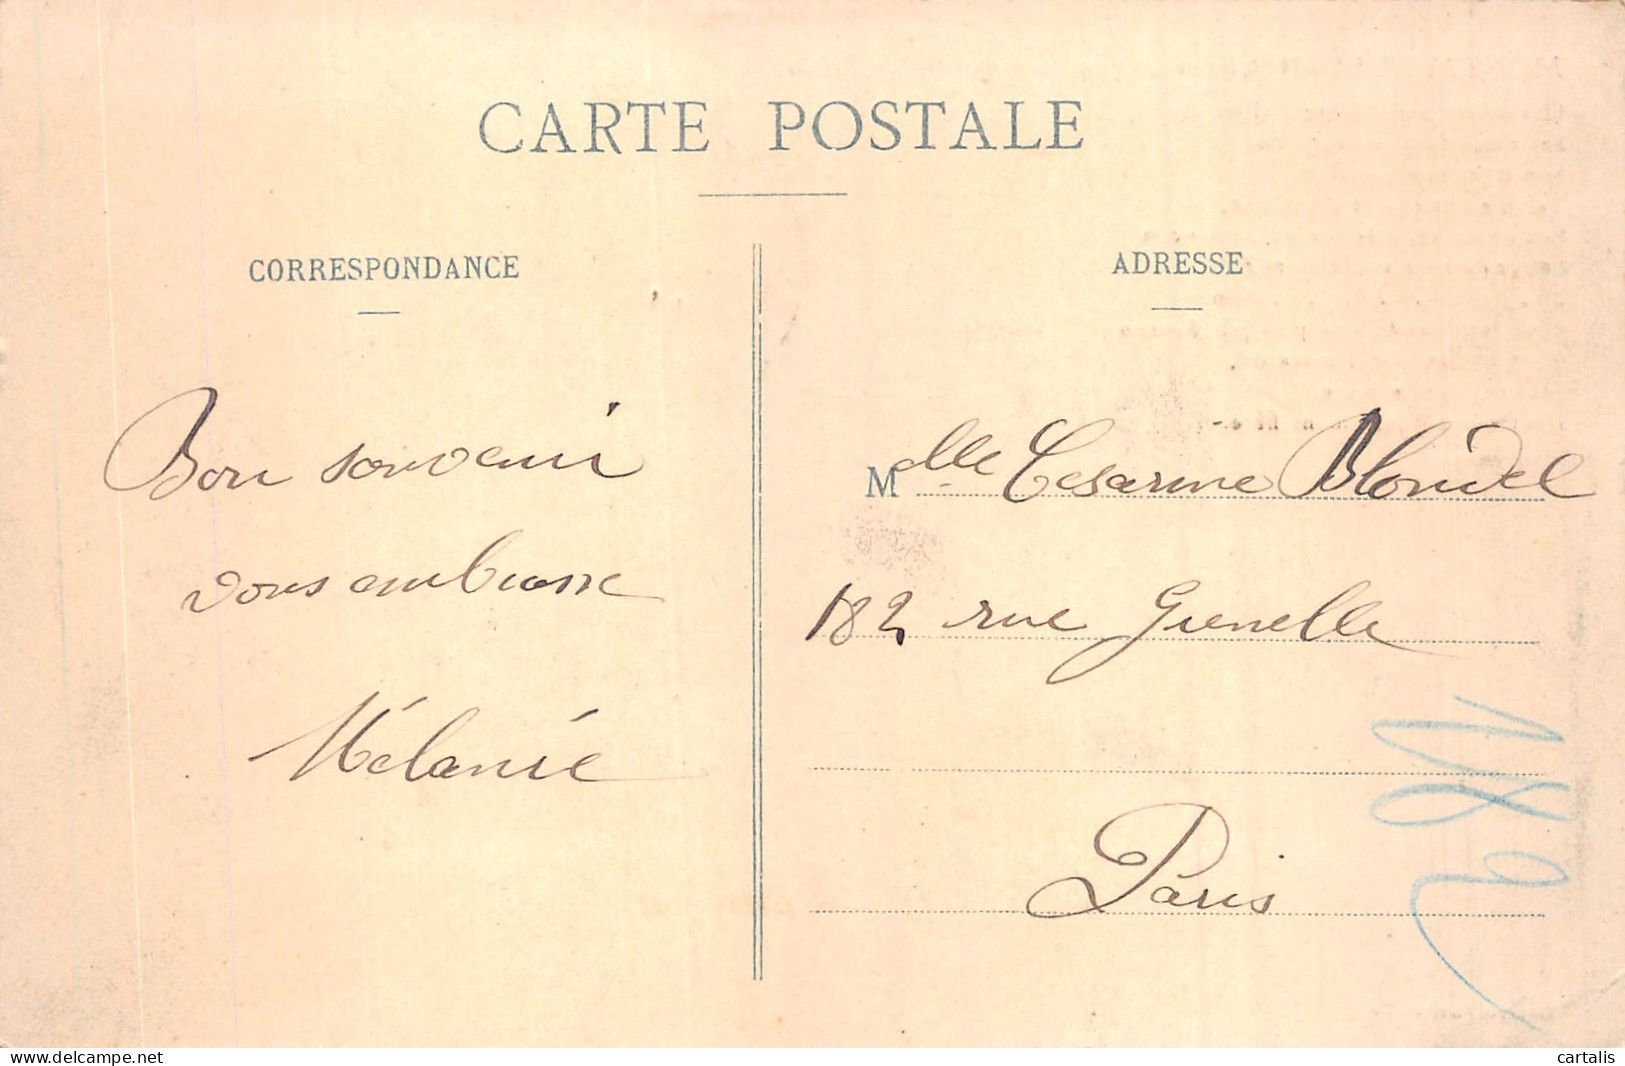 CARTE POSTALE
CORRESPONDANCE
Bon souvenir
vous embrasse
Mélanie
ADRESSE
Mdlle Cesarine Blondel
182 rue Grenelle
Paris
182
www.delcampe.net
cartalis